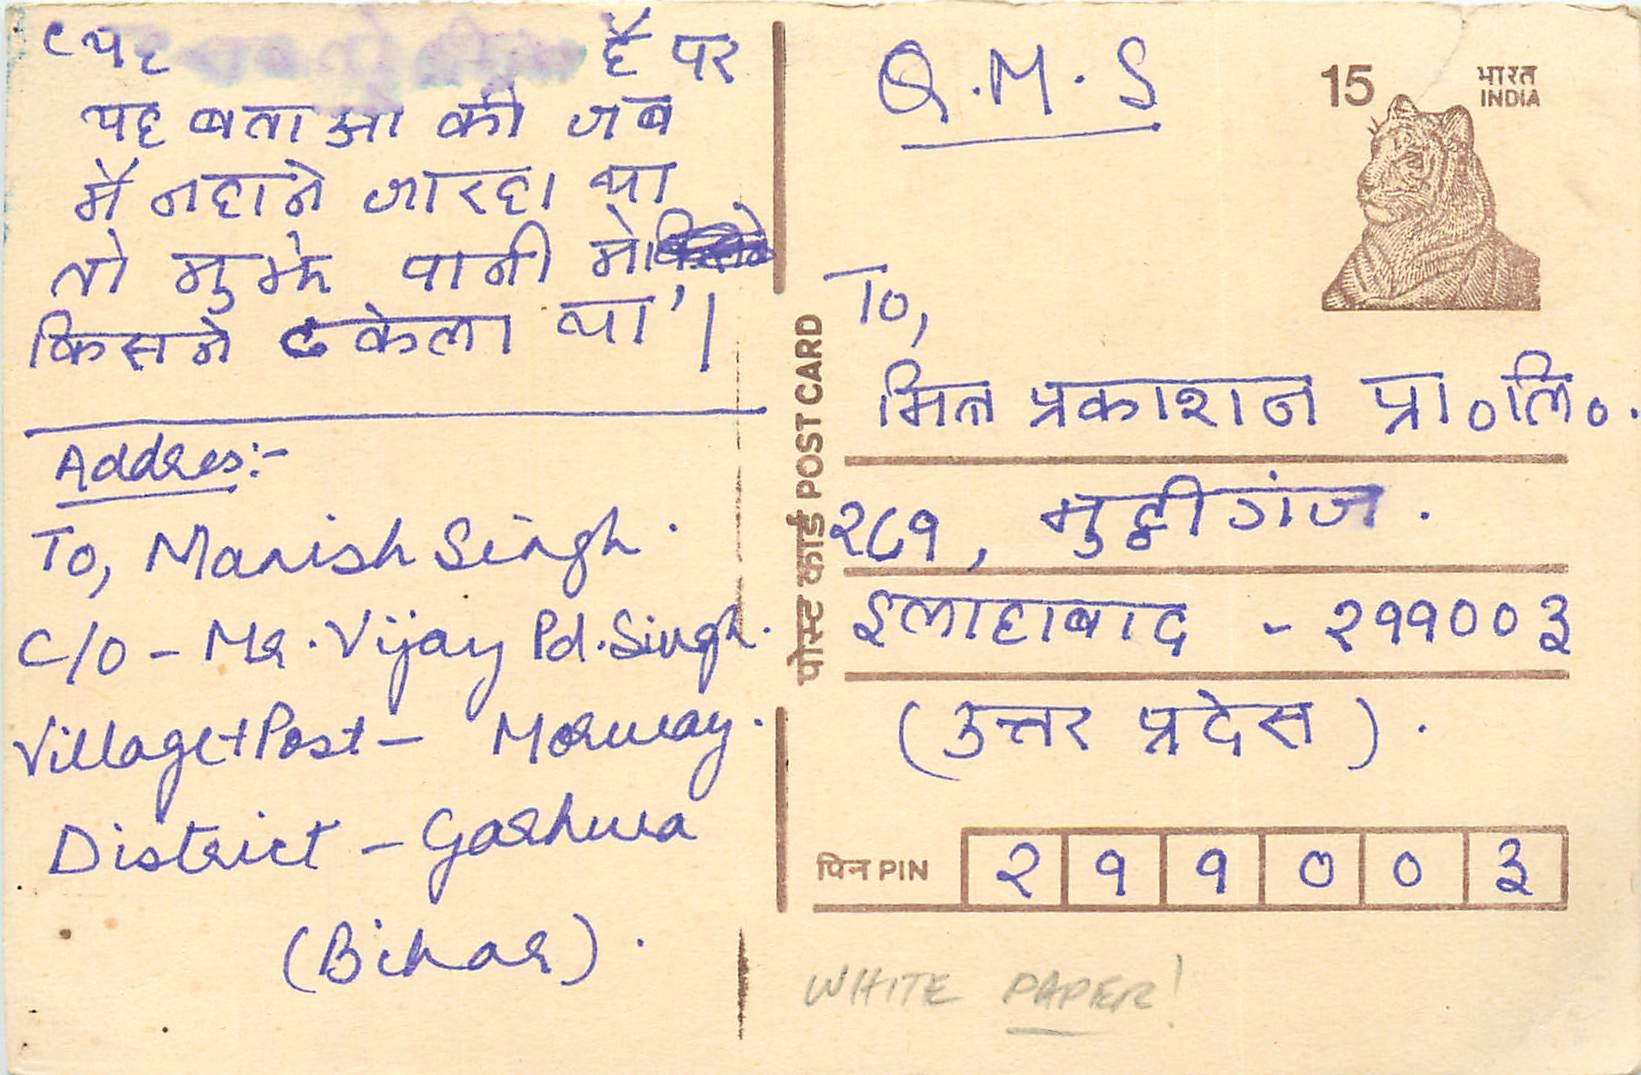 'यह है पर
यह बताओ की जब
मैं नहाने जा रहा था
तो मुझे पानी में
किसने ढकेला था'।
Addres:-
To, Manish Singh.
C/o - Mr. Vijay Pd. Singh.
Village+Post - Morway.
District - Garhwa
(Bihar).
Q.M.S
15 भारत
INDIA
पोस्ट कार्ड POST CARD
To,
मित्र प्रकाशन प्रा०लि०.
२८१, मुट्ठीगंज.
इलाहाबाद - २११००३
(उत्तर प्रदेस).
पिन PIN २ १ १ ० ० ३
WHITE PAPER!